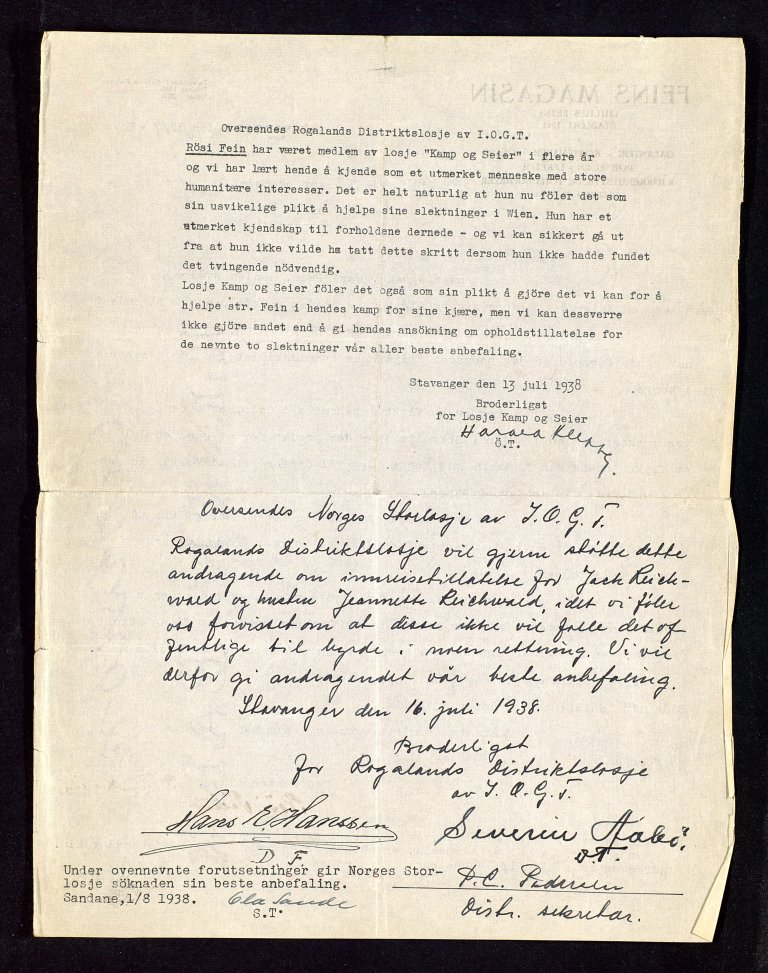 FEINS MAGASIN
Oversendes Rogalands Distriktslosje av I.O.G.T.
Rösi Fein har været medlem av losje "Kamp og Seier" i flere år
og vi har lært hende å kjende som et utmerket menneske med store
humanitære interesser. Det er helt naturlig at hun nu föler det som
sin usvikelige plikt å hjelpe sine slektninger i Wien. Hun har et
utmerket kjendskap til forholdene dernede - og vi kan sikkert gå ut
fra at hun ikke vilde ha tatt dette skritt dersom hun ikke hadde fundet
det tvingende nödvendig.
Losje Kamp og Seier föler det også som sin plikt å gjöre det vi kan for å
hjelpe str. Fein i hendes kamp for sine kjære, men vi kan dessverre
ikke gjöre andet end å gi hendes ansökning om opholdstillatelse for
de nevnte to slektninger vår aller beste anbefaling.
Stavanger den 13 juli 1938
Broderligst
for Losje Kamp og Seier
Harald
Ö.T.
Oversendes Norges Storlosje av I.O.G.T.
Rogalands Distriktslosje vil gjerne støtte dette
andragende om innreisetillatelse for Jack Reich-
wald og hustru Jeannette Reichwald, idet vi føler
oss forvisset om at disse ikke vil falle det of
fentlige til byrde i noen rettning. Vi vil
derfor gi andragendet vår beste anbefaling.
Stavanger den 16. juli 1938.
Broderligst
for Rogalands Distriktslosje
av I.O.G.T.
Hans E. Hanssen
D F.
Severin
D.T.
Under ovennevnte forutsetninger gir Norges Stor-
losje söknaden sin beste anbefaling.
Sandane, 1/8 1938. Ola Sande
S.T.
P.C. Pedersen
Distr. sekretær.